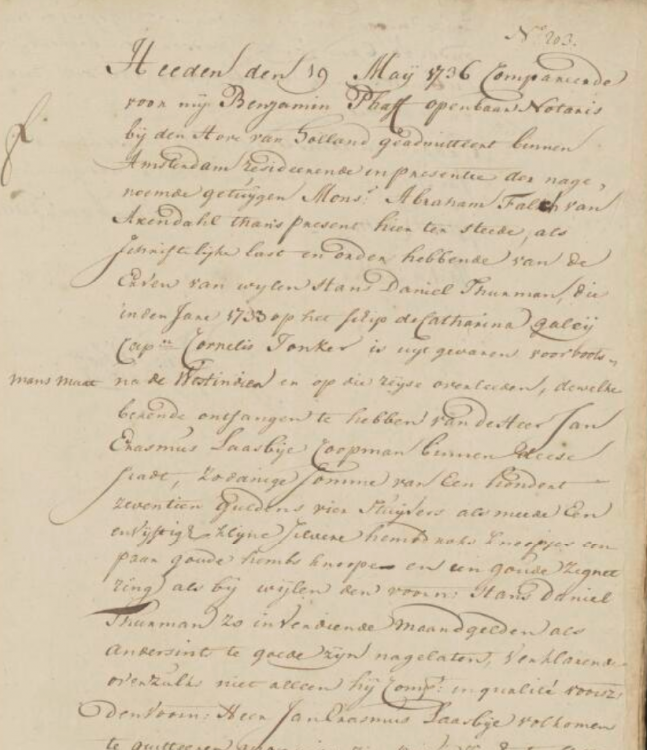 No 203.
Heeden den 19 Maij 1736 Compareerde
voor mij Benjamin Phaff openbaar Notaris
bij den Hove van Holland geadmitteert binnen
Amsterdam resideerende in presentie der nage,
noemde getuygen Mons:r Abraham Falck van
Arendahl thans present hier ter steede, als
schriftelijke last en orden hebbende van de
Erven van wylen Hans Daniel Thurman, die
in den Jare 1733 op het schip de Catharina Galeij
Cap:n Cornelis Jonker is uyt gevaren voor boots
mans maat na de Westindien en op die reyse overleeden, dewelke
bekende ontfangen te hebben van de Heer Jan
Erasmus Laasbije Coopman binnen deese
stadt, zodanige somme van Een hondert
zeventien guldens vier stuyvers als meede Een
envijftig klijne silvere hembdroks knoopjes een
paar goude hembs knoope en een goude zegnet
ring als bij wijlen den voorn: Hans Daniel
Thurman zo in verdiende maandgelden als
andersints te goede zijn nagelaten, Verklarende
overzulks niet alleen hij Comp:t in qualité voorsz:
den voorn: Heer Jan Erasmus Laasbije volkomen
te quitteeren